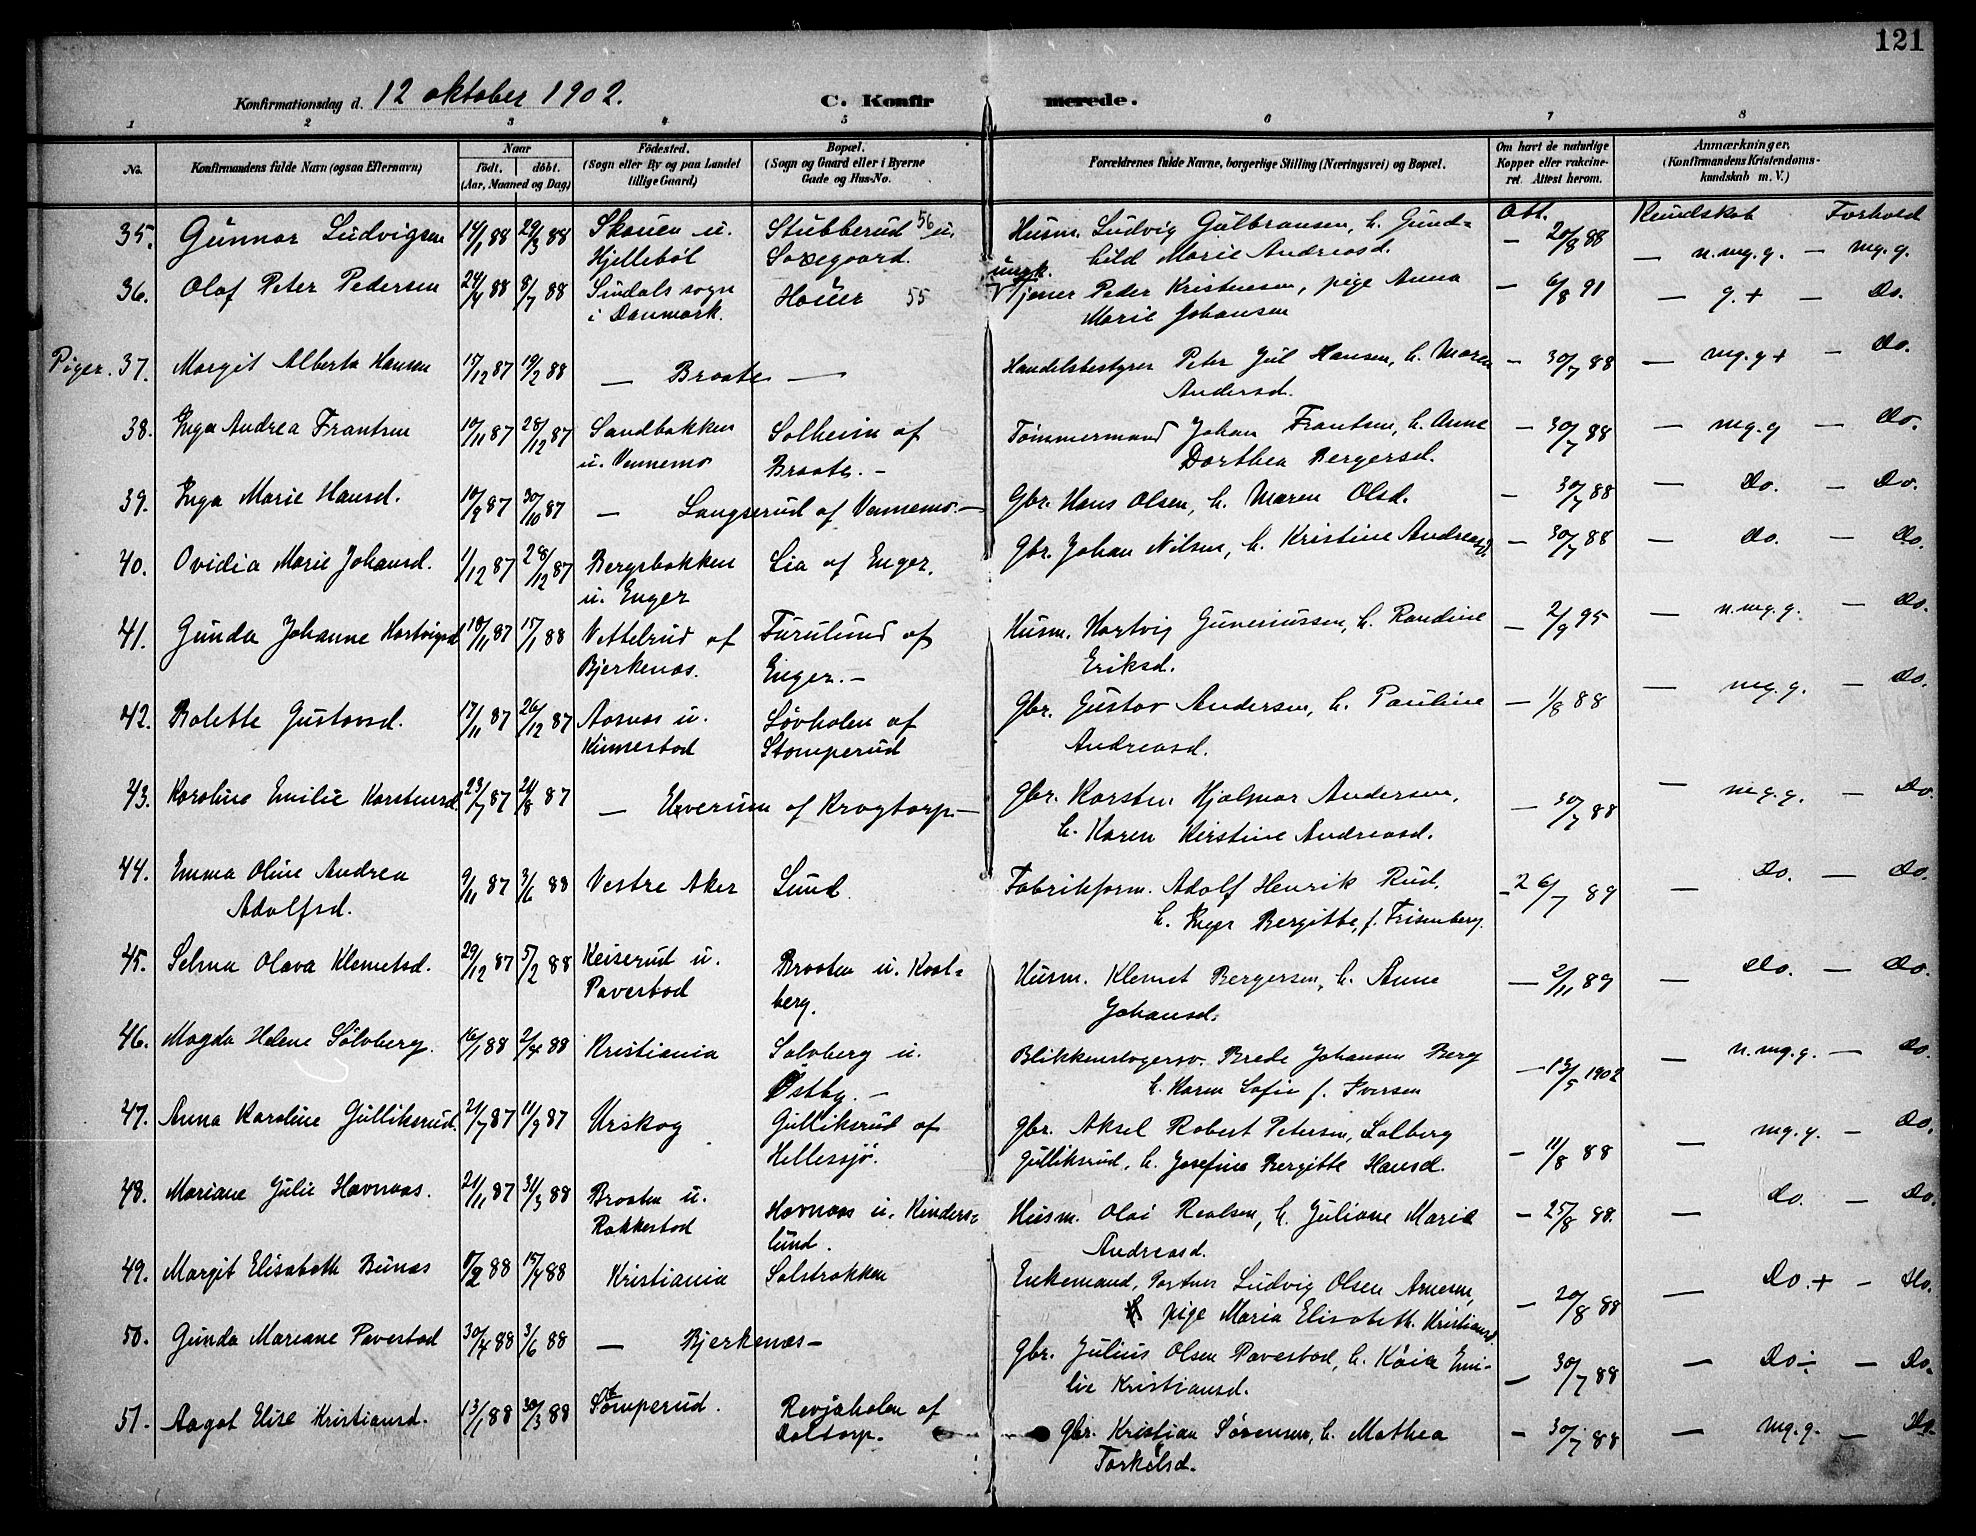 121
Konfirmationsdag d. 12 oktober 1902.
C. Konfirmerede.
1 2 3 4 5 6 7 8
No.
Konfirmandens fulde Navn (ogsaa Efternavn)
Naar
født. døbt.
(Aar, Maaned og Dag)
Fødested.
(Sogn eller By og paa Landet
tillige Gaard)
Bopæl.
(Sogn og Gaard eller i Byerne
Gade og Hus-No.
Forældrenes fulde Navne, borgerlige Stilling (Næringsvei) og Bopæl.
Om havt de naturlige
Kopper eller vakcine-
ret. Attest herom.
Anmærkninger.
(Konfirmandens Kristendoms-
kundskab m. V.)
Att. Kundskab Forhold
35. Gunnar Ludvigsen 14/1 88 29/3 88 Skauen u. Stubberud 56 u. Husm. Ludvig Gulbransen, h. Gund= — 20/8 88 — n.mg.g. — mg.g.
Hjellebøl Saxegaard. hild Marie Andreasd.
36. Olaf Peter Pedersen 24/4 88 8/7 88 Sindals sogn Hauer 55 ungk. Tjener Peder Kristensen, pige Anna — 6/8 91 — g.+ — Do.
i Danmark. Marie Johansen
Piger. 37. Margit Alberta Hansen 15/12 87 19/2 88 — Braate — Handelsbestyrer Peter Jul Hansen, h. Maren — 30/7 88 — mg.g+ — Do.
Andersd.
38. Inga Andrea Frantsen 10/11 87 28/12 87 Sandbakken Solheim af Tømmermand Johan Frantsen, h. Anne — 30/7 88 — mg.g — Do.
u. Vennemo Braate. — Dorthea Bergersd.
39. Inga Marie Hansd. 10/8 87 30/10 87 — Langserud af Vennemo. — Gbr. Hans Olsen, h. Maren Olsd. — 30/7 88 — Do. — Do.
40. Ovidia Marie Johansd. 1/12 87 28/12 87 Bergsbakken Lia af Enger. Gbr. Johan Nilsen, h. Kristine Andreasd. — 30/7 88 — Do. — Do.
u. Enger
41. Gunda Johanne Hartvigsd. 18/11 87 15/1 88 Vettelrud af Furulund af Husm. Hartvig Guneriussen, h. Randine — 2/9 95 — n.mg.g. — Do.
Bjerkenæs. Enger. — Eriksd.
42. Bolette Gustavsd. 17/11 87 26/12 87 Aasnæs u. Løvholen af Gbr. Gustav Andersen, h. Pauline — 1/8 88 — mg.g. — Do.
Kinnestad Stomperud Andreasd.
43. Karoline Emilie Karstensd. 23/7 87 21/8 87 — Elverum af Krogtorp — Gbr. Karsten Hjalmar Andersen, — 30/7 88 — mg.g. — Do.
h. Karen Kirstine Andreasd.
44. Emma Oline Andrea 9/11 87 3/6 88 Vestre Aker Lund. Fabrikform. Adolf Henrik Rud. — 26/7 89 — Do. — Do.
Adolfsd. h. Inger Bergitte, f. Frisenberg.
45. Selma Olava Klemetsd. 29/12 87 5/2 88 Keiserud u. Braaten u. Kool= Husm. Klemet Bergersen, h. Anne — 2/11 89 — Do. — Do.
Pavestad berg. Johansd.
46. Magda Helene Sølvberg. 16/1 88 2/4 88 Kristiania Solvberg u. Blikkenslagersv. Brede Johansen Berg — 13/5 1902 — n.mg.g. — Do.
Østby. — h. Karen Sofie f. Iversen
47. Anna Karoline Gulliksrud. 21/7 87 11/9 87 Urskog Gulliksrud af Gbr. Aksel Robert Petersen, Solberg — 11/8 88 — mg.g. — Do.
Hellesjø. Gulliksrud, h. Josefine Bergitte Hansd.
48. Mariane Julie Havnaas. 21/11 87 31/3 88 Braaten u. Havnaas u. Kinders= Husm. Olai Realsen, h. Juliane Marie — 25/8 88. — Do. — Do.
Rakkestad lund. Andreasd.
49. Margit Elisabeth Bunæs 1/2 88 15/4 88 Kristiania Solstrakken Enkemand, Portner Ludvig Olsen Arnesen, — 20/8 88 — Do.+ — Do.
pige Maria Elisabeth Kristiansd.
50. Gunda Mariane Pavestad 30/4 88 3/6 88 — Bjerkenæs — Gbr. Julius Olsen Pavestad, h. Kaia Emi- — 30/7 88 — Do÷ — Do.
lie Kristiansd.
51. Aagot Elise Kristiansd. 13/1 88 30/3 88 Stomperud. Revjaholen af Gbr. Kristian Sørensen, h. Mathea — 30/7 88 — mg.g. — Do.
Daltorp. Torkelsd.